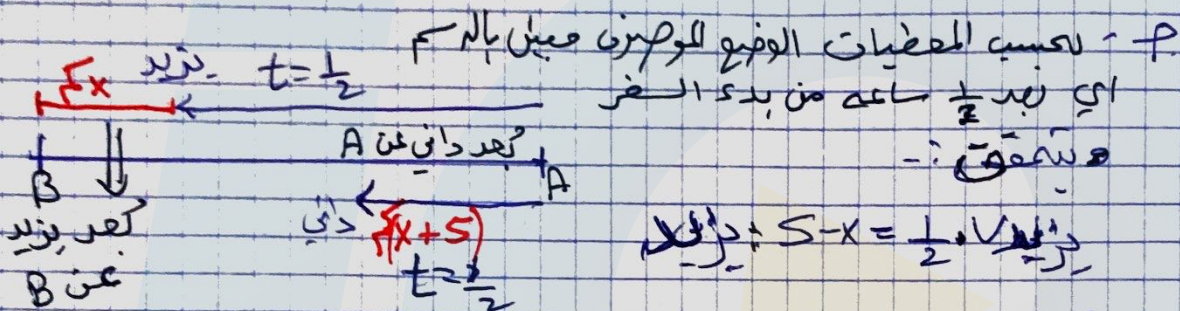 ج - بحسب المعطيات الوضع الموصوف مبين بالرسم
اي بعد 1/2 ساعة من بدء السفر
ويتحقق :-
يزيد : S-x = 1/2 · V يزيد
x
يزيد t = 1/2
بعد داني عن A
B
A
بعد يزيد
عن B
داني (x+5)
t = 1/2